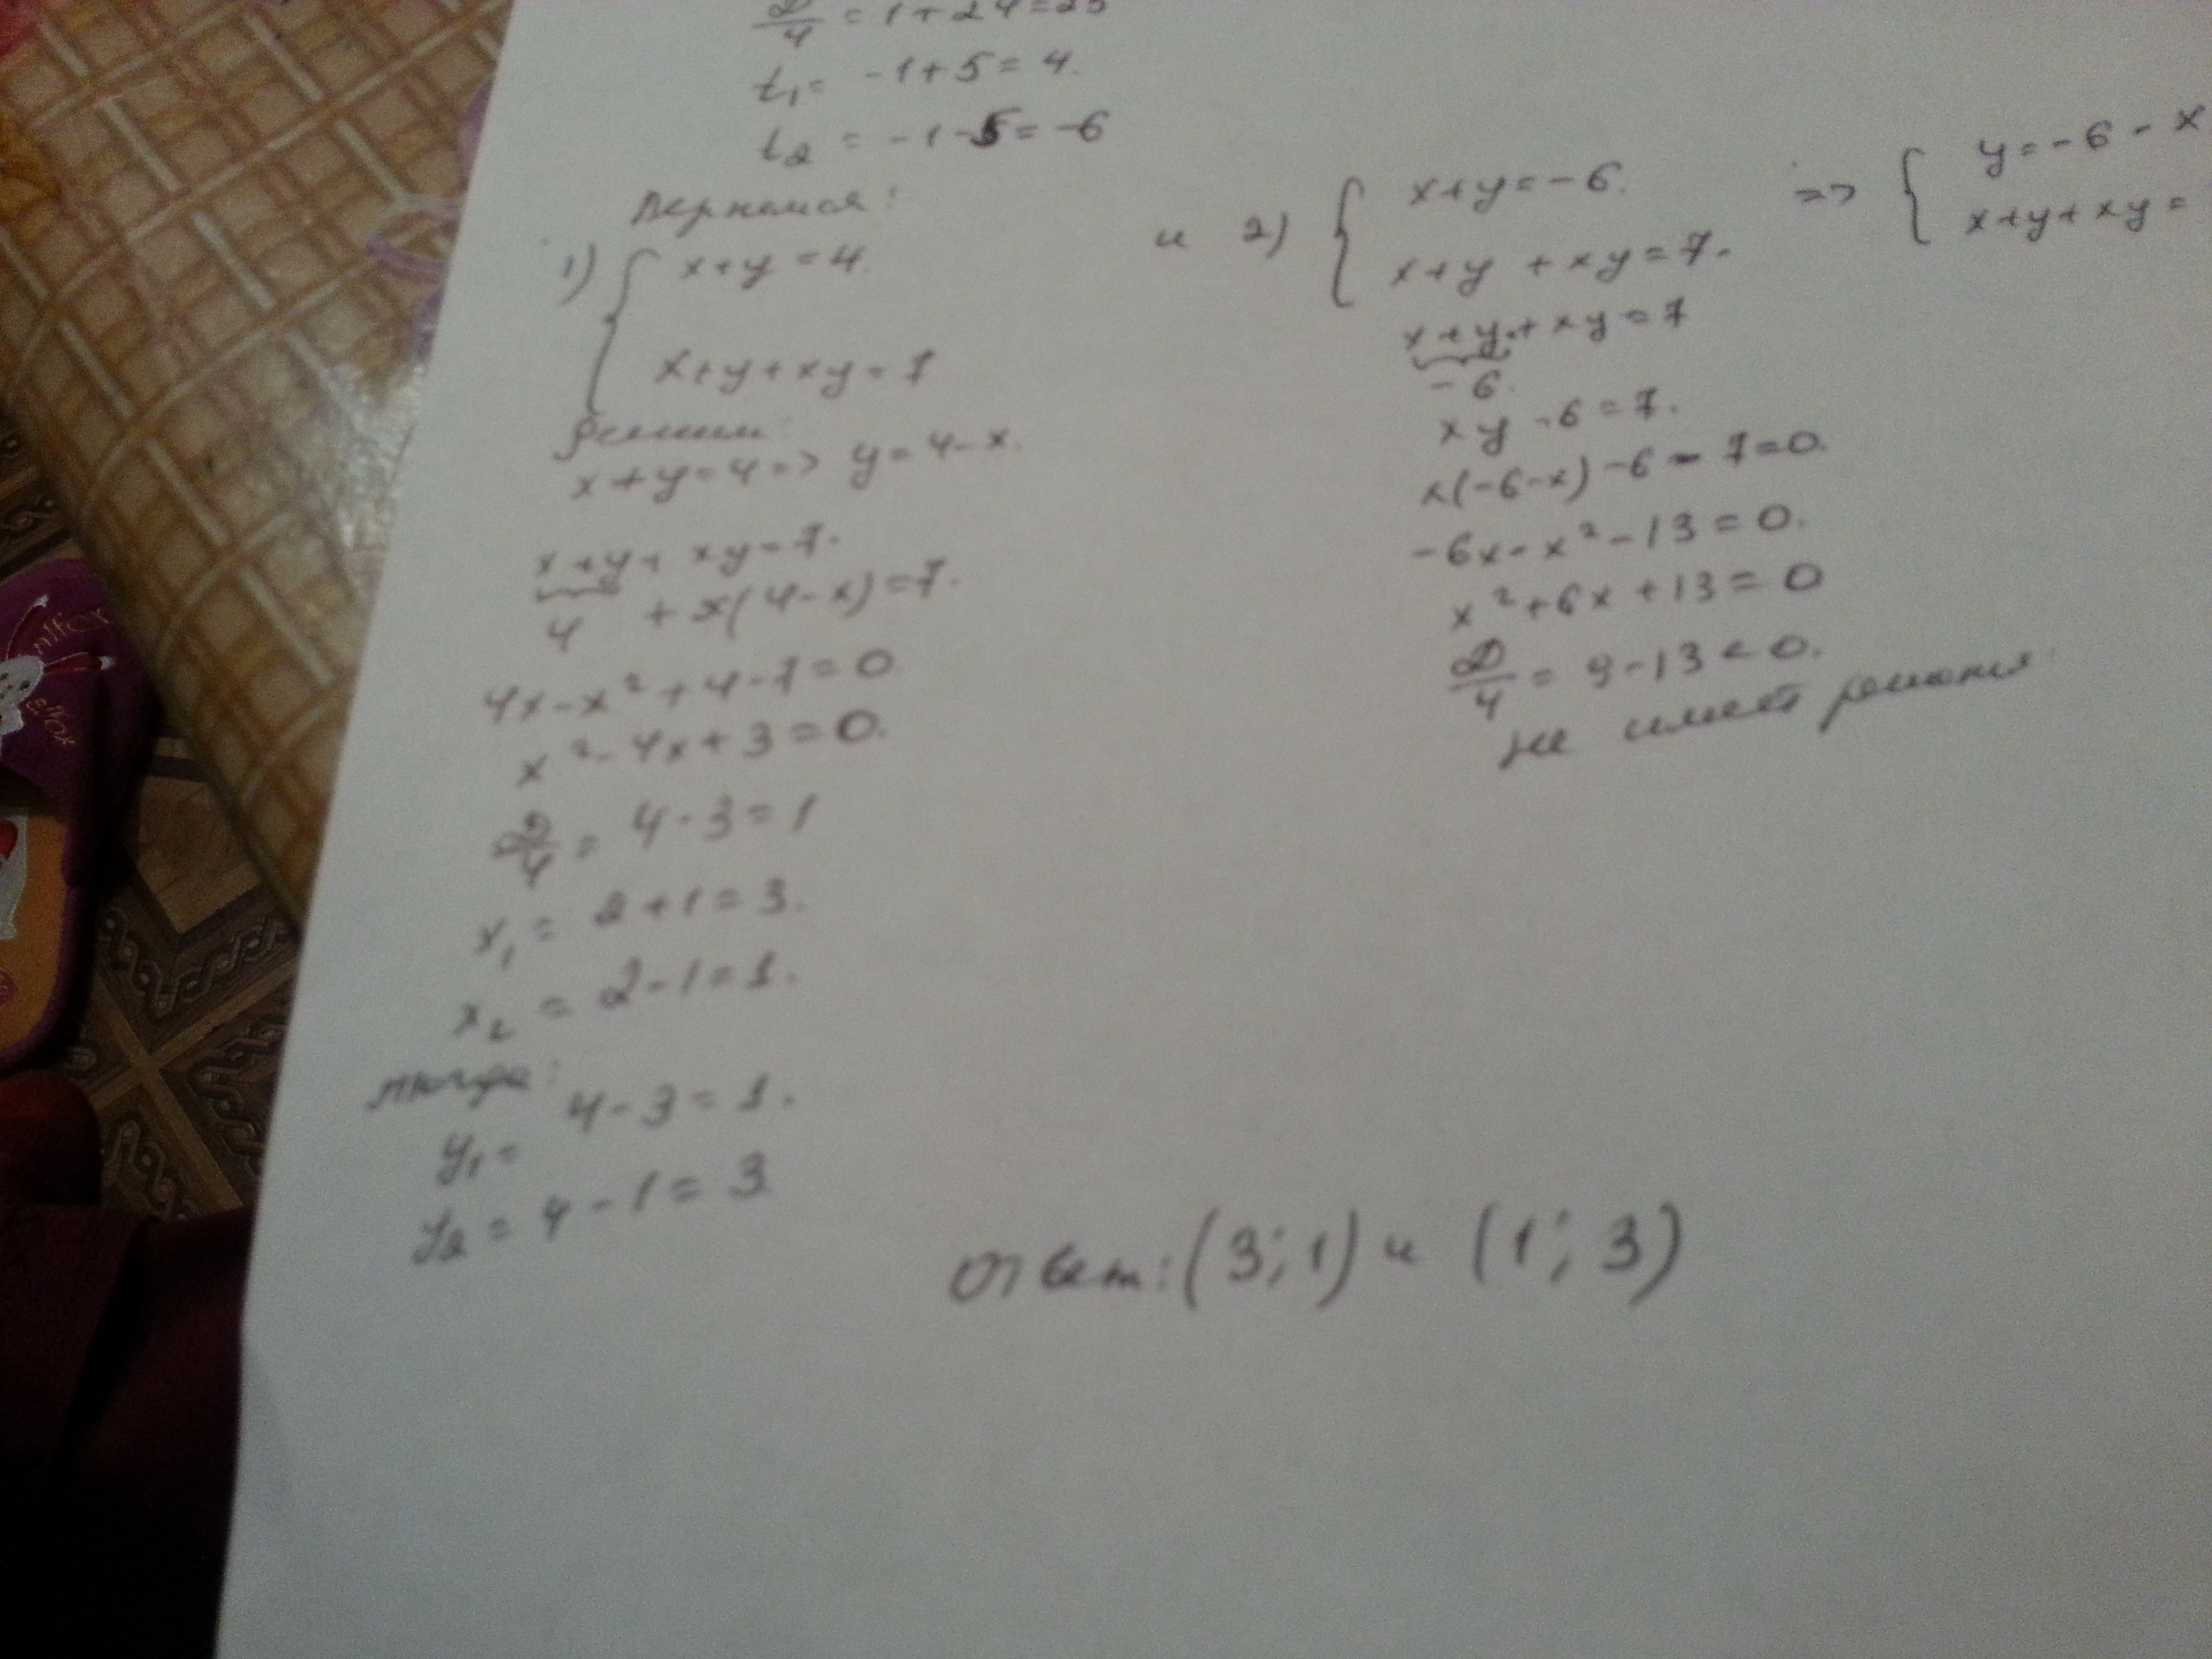 D/4 = 1+24=25
t₁= -1+5=4.
t₂ = -1-5=-6
Вернемся:
1) { x+y=4.
x+y+xy=7
Решим:
x+y=4=> y=4-x.
x+y+ xy=7.
4 + x(4-x)=7.
4x-x²+4-7=0
x²-4x+3=0.
D/4 = 4-3=1
x₁ = 2+1=3.
x₂ = 2-1=1.
тогда:
y₁= 4-3=1.
y₂=4-1=3
и 2) { x+y=-6. => { y=-6-x
x+y+xy=7. x+y+xy=
x+y+xy=7
-6.
xy-6=7.
x(-6-x)-6-7=0.
-6x-x²-13=0.
x²+6x+13=0
D/4 = 9-13<0.
не имеет решения
Ответ: (3; 1) и (1; 3)